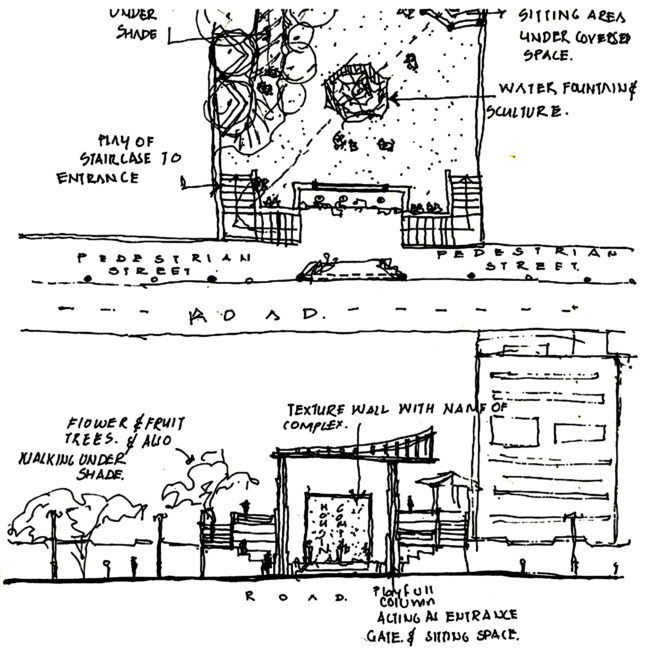 UNDER
SHADE
SITTING AREA
UNDER COVERSED
SPACE.
WATER FOUNTAIN &
SCULTURE.
PLAY OF
STAIRCASE TO
ENTRANCE
PEDESTRIAN
STREET
PEDESTRIAN
STREET.
ROAD.
TEXTURE WALL WITH NAME OF
COMPLEX.
FLOWER & FRUIT
TREES. & ALSO
WALKING UNDER
SHADE.
ROAD.
PLAYFULL
COLUMN
ACTING AS ENTRANCE
GATE. & SITTING SPACE.